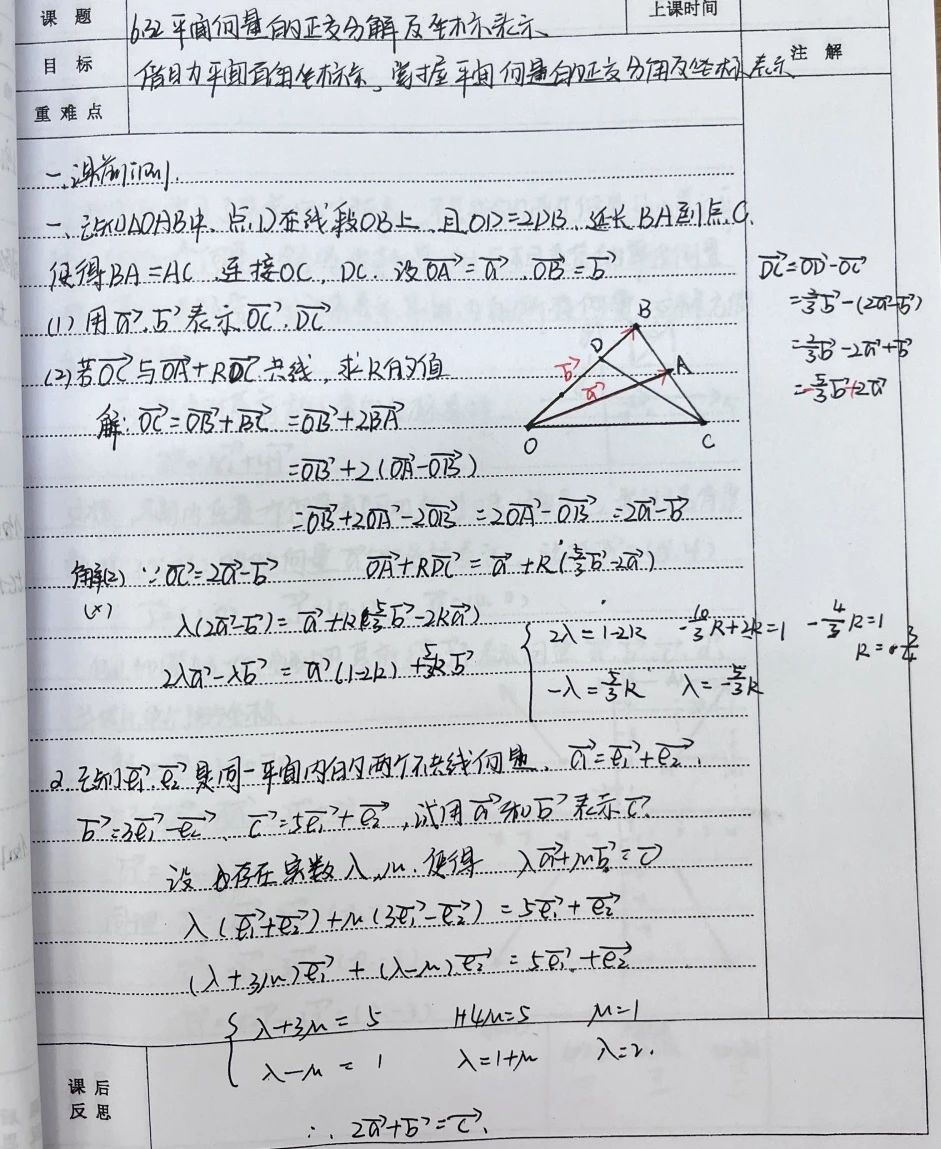 课题 6.3.2 平面向量的正交分解及坐标表示 上课时间
目标 借助平面直角坐标系,掌握平面向量的正交分解及坐标表示 注解
重难点
一.课前训练.
一、已知△OAB中,点D在线段OB上,且OD=2DB,延长BA到点C.
使得BA=AC 连接OC,DC.设\overrightarrow{OA}=\vec{a},\overrightarrow{OB}=\vec{b}
(1)用\vec{a},\vec{b}表示\overrightarrow{OC}.\overrightarrow{DC}
(2)若\overrightarrow{OC}与\overrightarrow{OA}+k\overrightarrow{DC}共线,求k的值
B
D
A
\vec{b}
\vec{a}
O
C
解:\overrightarrow{OC}=\overrightarrow{OB}+\overrightarrow{BC}=\overrightarrow{OB}+2\overrightarrow{BA}
=\overrightarrow{OB}+2(\overrightarrow{OA}-\overrightarrow{OB})
=\overrightarrow{OB}+2\overrightarrow{OA}-2\overrightarrow{OB}=2\overrightarrow{OA}-\overrightarrow{OB}=2\vec{a}-\vec{b}
\overrightarrow{DC}=\overrightarrow{OD}-\overrightarrow{OC}
=\frac{2}{3}\vec{b}-(2\vec{a}-\vec{b})
=\frac{2}{3}\vec{b}-2\vec{a}+\vec{b}
=-\frac{5}{3}\vec{b}+2\vec{a}
解(2) ∵\overrightarrow{OC}=2\vec{a}-\vec{b} \overrightarrow{OA}+k\overrightarrow{DC}=\vec{a}+k(\frac{5}{3}\vec{b}-2\vec{a})
(×) λ(2\vec{a}-\vec{b})=\vec{a}+k\frac{5}{3}\vec{b}-2k\vec{a})
2λ\vec{a}-λ\vec{b}=\vec{a}(1-2k)+\frac{5}{3}k\vec{b}
{ 2λ=1-2k -\frac{10}{3}k+2k=1 -\frac{4}{3}k=1
-λ=\frac{5}{3}k λ=-\frac{5}{3}k k=-\frac{3}{4}
2.已知\vec{e_1}.\vec{e_2}是同一平面内的两个不共线向量、\vec{a}=\vec{e_1}+\vec{e_2}.
\vec{b}=3\vec{e_1}-\vec{e_2}、\vec{c}=5\vec{e_1}+\vec{e_2},试用\vec{a}和\vec{b}表示\vec{c}.
设 存在实数λ,μ.使得 λ\vec{a}+μ\vec{b}=\vec{c}
λ(\vec{e_1}+\vec{e_2})+μ(3\vec{e_1}-\vec{e_2})=5\vec{e_1}+\vec{e_2}
(λ+3μ)\vec{e_1}+(λ-μ)\vec{e_2}=5\vec{e_1}+\vec{e_2}
{ λ+3μ=5 1+4μ=5 μ=1
λ-μ=1 λ=1+μ λ=2.
课后
反思
∴ 2\vec{a}+\vec{b}=\vec{c}.